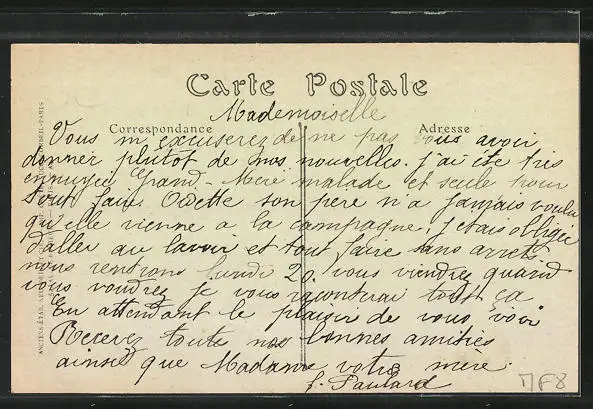 Carte Postale
Mademoiselle
Correspondance
Adresse
Vous m'excuserez de ne pas vous avoir
donner plutot de nos nouvelles. j'ai été très
ennuyée Grand-Mère malade et seule pour
tout faire Odette son père n'a jamais voulu
qu'elle vienne a la campagne, j'etais obligée
d'aller au lavoir et tout faire sans arret
nous rentrons lundi 20. vous viendrez quand
vous voudrez je vous raconterai tout ça
En attendant le plaisir de vous voir
Recevez toute nos bonnes amitiés
ainsi que Madame votre mère.
PARIS
7F8